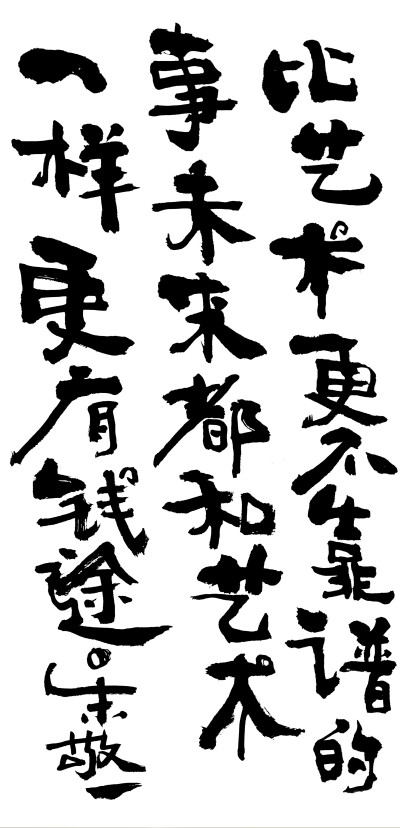 比艺术更不靠谱的
事未来都和艺术
一样更有钱途。朱敬一